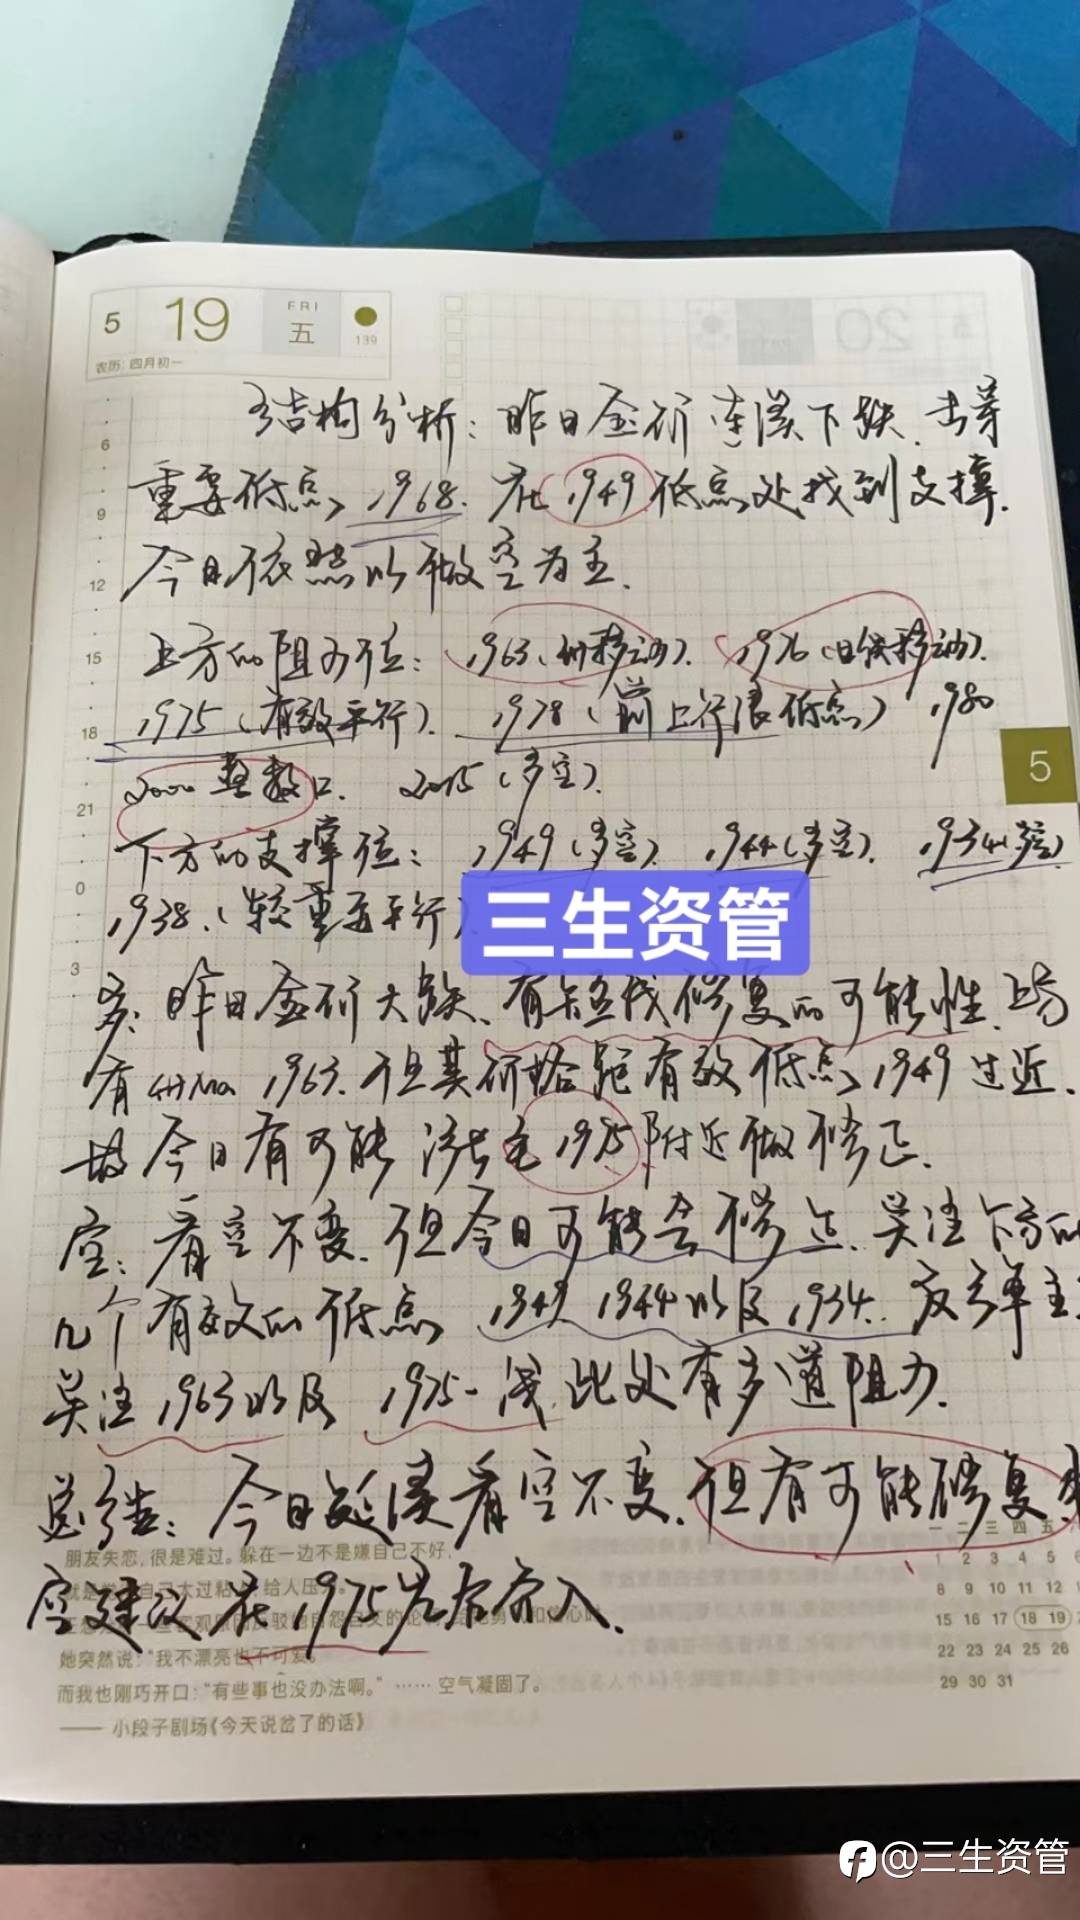 5 19 FRI 五 139
农历：四月初一
结构分析：昨日金价连续下跌.击穿
重要低点 1968. 在1949低点处找到支撑.
今日依然以做空为主.
上方的阻力位：1963（4H移动）. 1976（日线移动）.
1975（有效平行）. 1978（前上行浪低点） 1980
2000整数口. 2015（多空）.
下方的支撑位：1949（多空）. 1944（多空）. 1934（多空）
1938.（较重要平行）
三生资管
多：昨日金价大跌、有短线修复的可能性.上方
有4HMa 1963. 但其价格距有效低点1949过近.
故今日有可能涨至1975附近做修正.
空：看空不变.但今日可能会修正.关注下方的
几个有效的低点 1949. 1944以及1934. 反弹主
关注1963以及 1975一线.此处有多道阻力.
总结：今日延续看空不变.但有可能修复.
空建议在1975左右介入.
朋友失恋，很是难过。躲在一边不是嫌自己不好，
她突然说：“我不漂亮也不可爱。”
而我也刚巧开口：“有些事也没办法啊。”……空气凝固了。
——小段子剧场《今天说岔了的话》
6
9
12
15
18
21
0
3
5
20
一 二 三 四 五
1 2 3 4 5
8 9 10 11 12
15 16 17 18 19
22 23 24 25 26
29 30 31
@三生资管